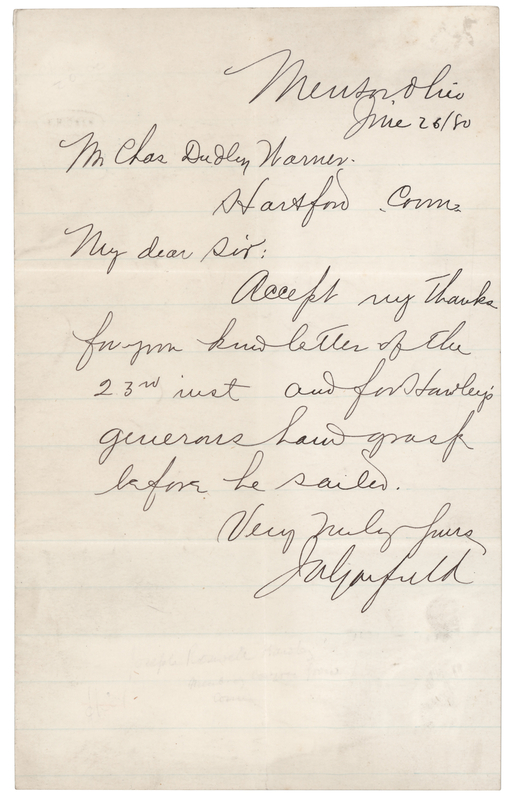 Mentor Ohio
June 26/80
Mr Chas Dudley Warner.
Hartford Conn.
My dear Sir:
Accept my thanks
for your kind letter of the
23rd inst and for Hawley's
generous hand grasp
before he sailed.
Very truly yours
JAGarfield